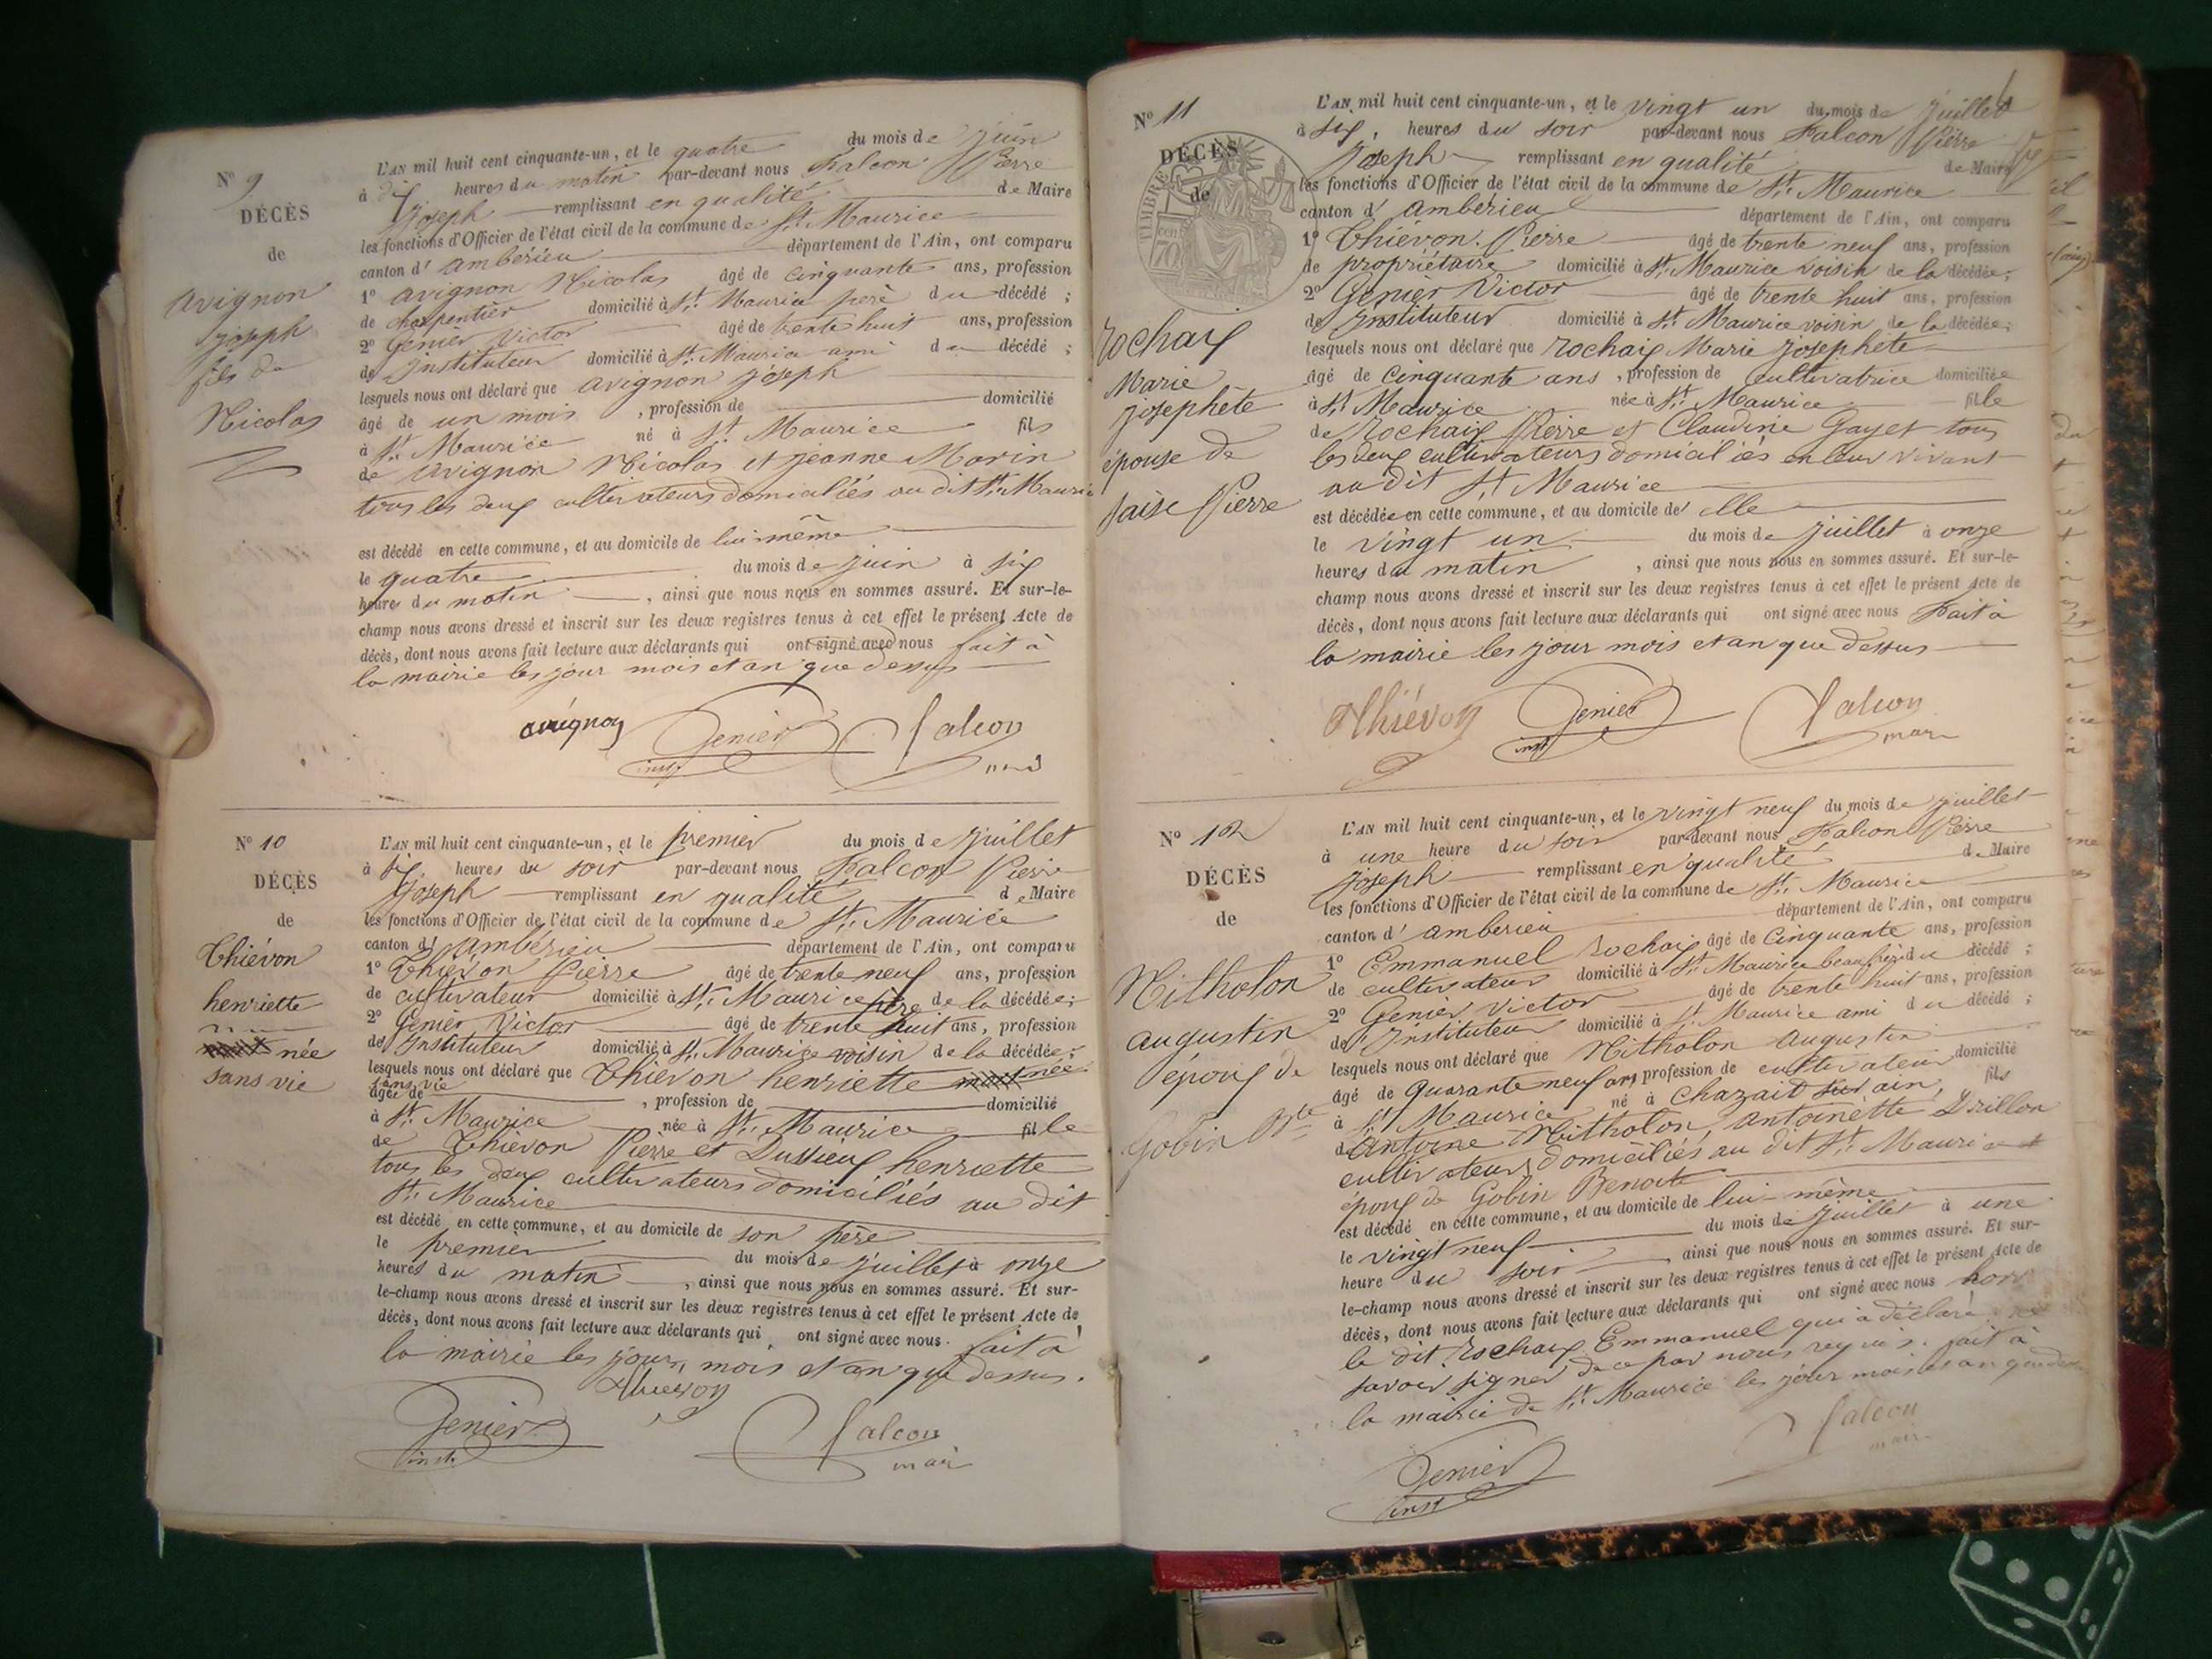 N° 9
DÉCÈS
de
Avignon
Joseph
fils de
Nicolas
L'AN mil huit cent cinquante-un, et le quatre du mois de juin
à dix heures du matin par-devant nous Falcon Pierre
Joseph remplissant en qualité de Maire
les fonctions d'Officier de l'état civil de la commune de St. Maurice
canton d' ambérieu département de l'Ain, ont comparu
1° avignon Nicolas âgé de cinquante ans, profession
de charpentier domicilié à St. Maurice père du décédé ;
2° Genier Victor âgé de trente huit ans, profession
de Instituteur domicilié à St. Maurice ami du décédé ;
lesquels nous ont déclaré que avignon joseph
âgé de un mois , profession de domicilié
à St. Maurice né à St. Maurice fils
de avignon Nicolas et jeanne Morin
tous les deux cultivateurs domiciliés au dit St. Maurice
est décédé en cette commune, et au domicile de lui même
le quatre du mois de juin à six
heures du matin , ainsi que nous nous en sommes assuré. Et sur-le-
champ nous avons dressé et inscrit sur les deux registres tenus à cet effet le présent Acte de
décès, dont nous avons fait lecture aux déclarants qui ont signé avec nous fait à
la mairie les jour mois et an que dessus
avignon Genier Falcon
inst.
N° 10
DÉCÈS
de
Thiévon
henriette
née
sans vie
L'AN mil huit cent cinquante-un, et le premier du mois de juillet
à six heures du soir par-devant nous Falcon Pierre
Joseph remplissant en qualité de Maire
les fonctions d'Officier de l'état civil de la commune de St. Maurice
canton d' ambérieu département de l'Ain, ont comparu
1° Thiévon Pierre âgé de trente neuf ans, profession
de cultivateur domicilié à St. Maurice père de la décédée ;
2° Genier Victor âgé de trente huit ans, profession
de Instituteur domicilié à St. Maurice voisin de la décédée ;
lesquels nous ont déclaré que Thiévon henriette née
sans vie
âgée de , profession de domicilié
à St. Maurice née à St. Maurice fille
de Thiévon Pierre et Dussieux henriette
tous les deux cultivateurs domiciliés au dit
St. Maurice
est décédé en cette commune, et au domicile de son père
le premier du mois de juillet à onze
heures du matin , ainsi que nous nous en sommes assuré. Et sur-
le-champ nous avons dressé et inscrit sur les deux registres tenus à cet effet le présent Acte de
décès, dont nous avons fait lecture aux déclarants qui ont signé avec nous. fait à
la mairie les jour, mois et an que dessus.
Thiévon
Genier Falcon
inst. maire
N° 11
DÉCÈS
de
TIMBRE
cen
70
Rochaix
Marie
Josephète
épouse de
Jaise Pierre
L'AN mil huit cent cinquante-un, et le vingt un du mois de juillet
à six, heures du soir par-devant nous Falcon Pierre
Joseph remplissant en qualité de Maire
les fonctions d'Officier de l'état civil de la commune de St. Maurice
canton d' ambérieu département de l'Ain, ont comparu
1° Thiévon. Pierre âgé de trente neuf ans, profession
de propriétaire domicilié à St. Maurice voisin de la décédée ;
2° Genier Victor âgé de trente huit ans, profession
de Instituteur domicilié à St. Maurice voisin de la décédée ;
lesquels nous ont déclaré que Rochaix Marie josephete
âgé de cinquante ans , profession de cultivatrice domiciliée
à St. Maurice née à St. Maurice fille
de Rochaix Pierre et Claudine Gayet tous
les deux cultivateurs domiciliés en leur vivant
au dit St. Maurice
est décédée en cette commune, et au domicile de elle
le vingt un du mois de juillet à onze
heures du matin , ainsi que nous nous en sommes assuré. Et sur-le-
champ nous avons dressé et inscrit sur les deux registres tenus à cet effet le présent Acte de
décès, dont nous avons fait lecture aux déclarants qui ont signé avec nous Fait à
la mairie les jour mois et an que dessus
Thiévon Genier Falcon
inst maire
N° 12
DÉCÈS
de
Nitholon
augustin
époux de
Gobin Bte
L'AN mil huit cent cinquante-un, et le vingt neuf du mois de juillet
à une heure du soir par-devant nous Falcon Pierre
joseph remplissant en qualité de Maire
les fonctions d'Officier de l'état civil de la commune de St. Maurice
canton d' amberieu département de l'Ain, ont comparu
1° Emmanuel Rochaix âgé de cinquante ans, profession
de cultivateur domicilié à St. Maurice beau frère du décédé ;
2° Genier Victor âgé de trente huit ans, profession
de Instituteur domicilié à St. Maurice ami du décédé ;
lesquels nous ont déclaré que Nitholon augustin
âgé de quarante neuf ans, profession de cultivateur domicilié
à St. Maurice né à Chazait sur ain, fils
d'antoine Nitholon, antoinette Drillon
cultivateurs domiciliés au dit St. Maurice et
époux de Gobin Benoite
est décédé en cette commune, et au domicile de lui-même
le vingt neuf du mois de juillet à une
heure du soir , ainsi que nous nous en sommes assuré. Et sur-
le-champ nous avons dressé et inscrit sur les deux registres tenus à cet effet le présent Acte de
décès, dont nous avons fait lecture aux déclarants qui ont signé avec nous hors
le dit Rochaix Emmanuel qui a déclaré ne
savoir signer de ce par nous requis. fait à
la mairie de St. Maurice les jour mois et an que dessus
Genier Falcon
inst maire